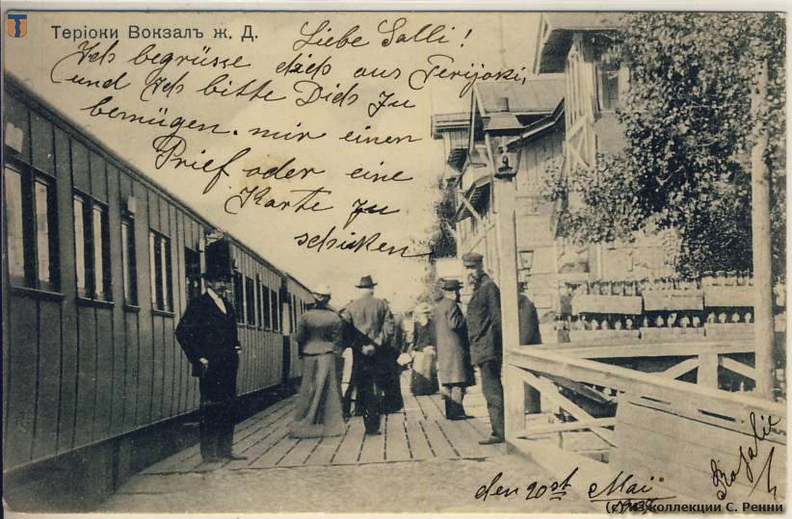 Теріоки Вокзалъ ж. Д.
Liebe Salli!
Ich begrüsse dich aus Terijoki,
und Ich bitte Dich zu
bemügen. mir einen
Prief oder eine
Karte zu
schicken
den 20st Mai
Rosalie
(c) из коллекции С. Ренни